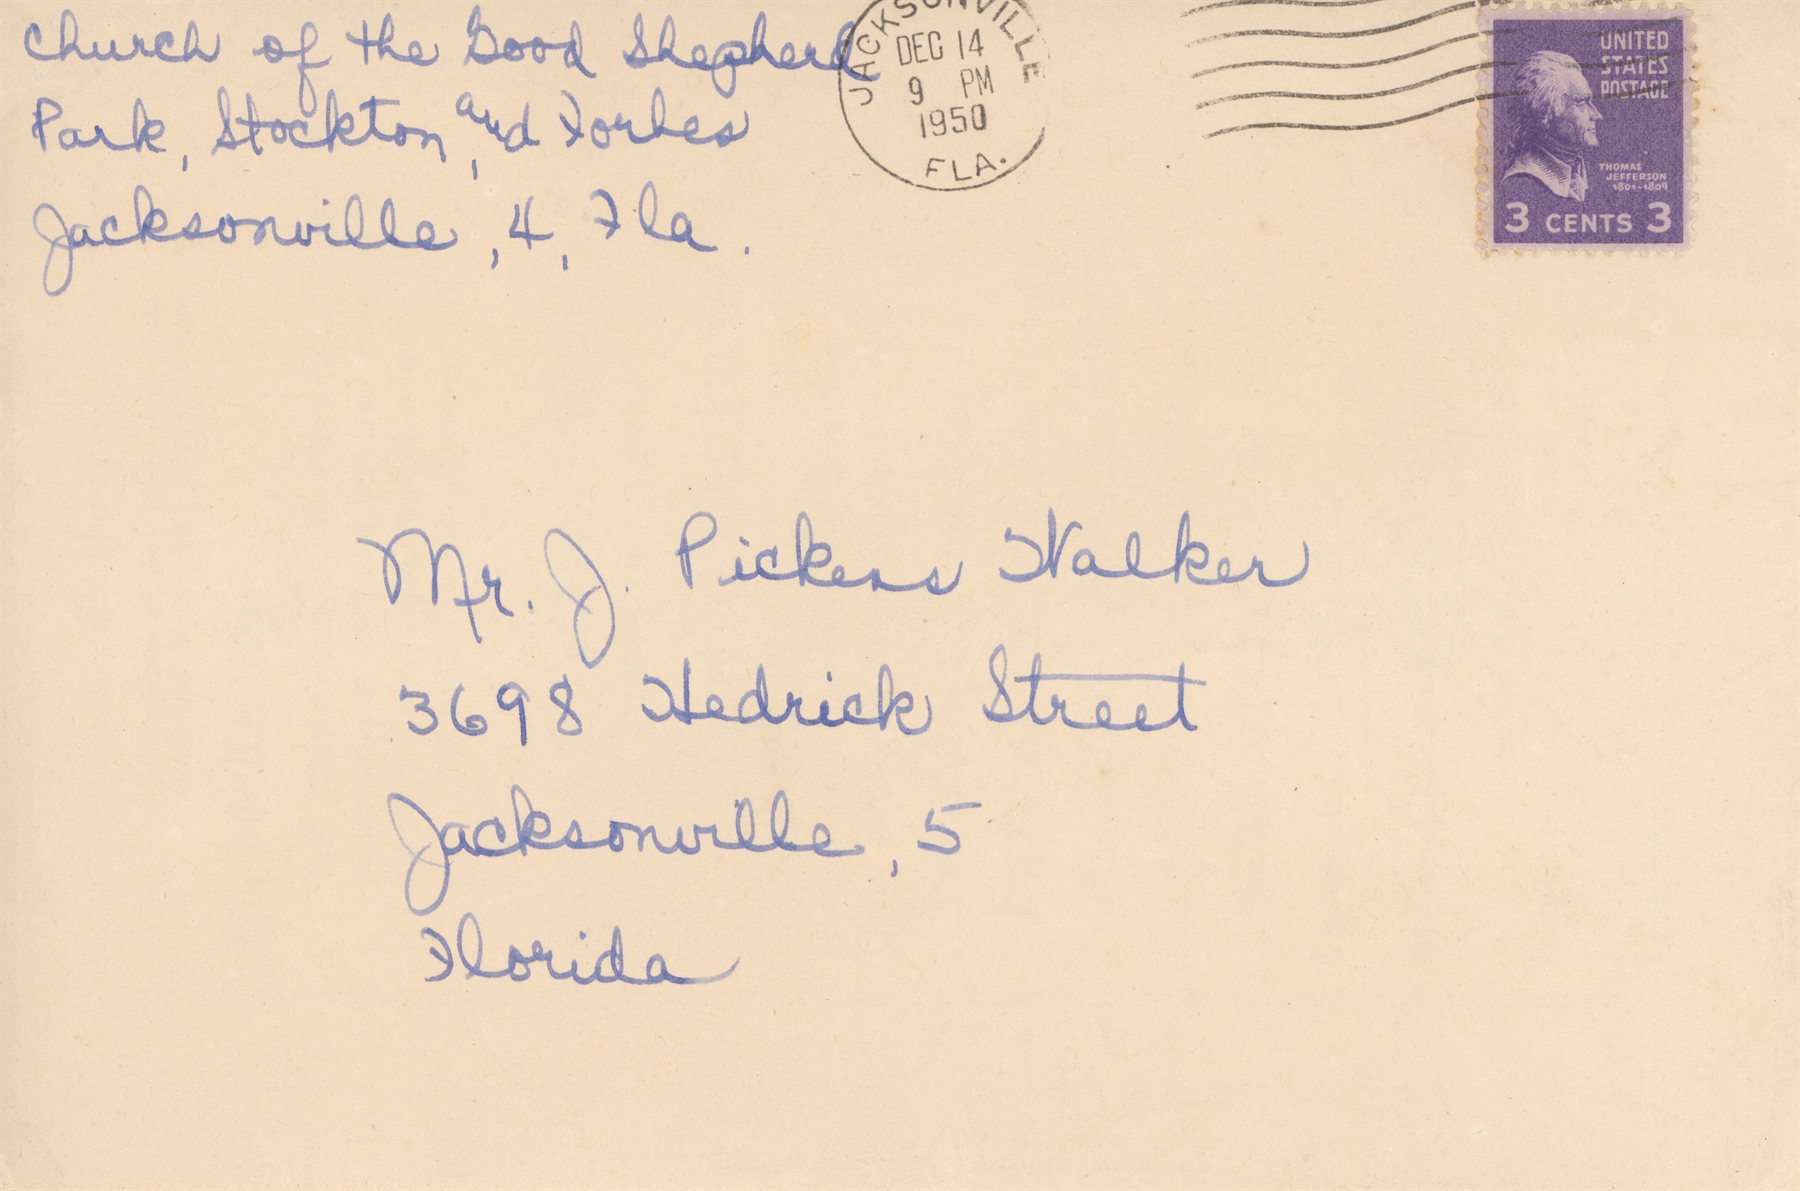 Church of the Good Shepherd
Park, Stockton, and Forbes
Jacksonville, 4, Fla.
JACKSONVILLE
DEC 14
9 PM
1950
FLA.
UNITED
STATES
POSTAGE
THOMAS
JEFFERSON
1801-1809
3 CENTS 3
Mr. J. Pickens Walker
3698 Hedrick Street
Jacksonville, 5
Florida